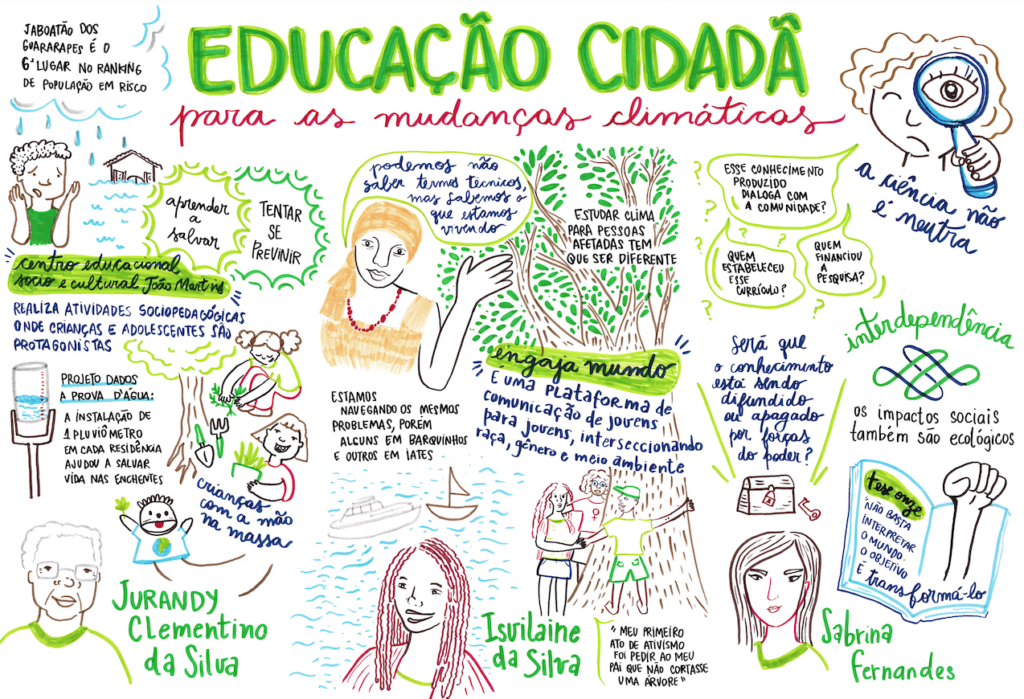 EDUCAÇÃO CIDADÃ
para as mudanças climáticas
JABOATÃO DOS
GUARARAPES É O
6º LUGAR NO RANKING
DE POPULAÇÃO EM RISCO
aprender
a
salvar
TENTAR
SE
PREVINIR
centro educacional
socio e cultural João Martins
REALIZA ATIVIDADES SOCIOPEDAGÓGICAS
ONDE CRIANÇAS E ADOLESCENTES SÃO
PROTAGONISTAS
PROJETO DADOS
A PROVA D'ÁGUA:
A INSTALAÇÃO DE
1 PLUVIÔMETRO
EM CADA RESIDÊNCIA
AJUDOU A SALVAR
VIDA NAS ENCHENTES
crianças
com a mão
na massa
JURANDY
Clementino
da Silva
podemos não
saber termos técnicos,
mas sabemos o
que estamos
vivendo
ESTUDAR CLIMA
PARA PESSOAS
AFETADAS TEM
QUE SER DIFERENTE
engaja mundo
É UMA PLATAFORMA DE
COMUNICAÇÃO DE JOVENS
PARA JOVENS, INTERSECCIONANDO
RAÇA, GÊNERO E MEIO AMBIENTE
ESTAMOS
NAVEGANDO OS MESMOS
PROBLEMAS, PORÉM
ALGUNS EM BARQUINHOS
E OUTROS EM IATES
Isvilaine
da Silva
"MEU PRIMEIRO
ATO DE ATIVISMO
FOI PEDIR AO MEU
PAI QUE NÃO CORTASSE
UMA ÁRVORE"
ESSE CONHECIMENTO
PRODUZIDO
DIALOGA COM
A COMUNIDADE?
QUEM
ESTABELECEU
ESSE
CURRÍCULO?
QUEM
FINANCIOU
A
PESQUISA?
a ciência não
é neutra
Será que
o conhecimento
está sendo
difundido
ou apagado
por forças
do poder?
interdependência
os impactos sociais
também são ecológicos
tese onze
"NÃO BASTA
INTERPRETAR
O MUNDO
O OBJETIVO
É transformá-lo
Sabrina
Fernandes